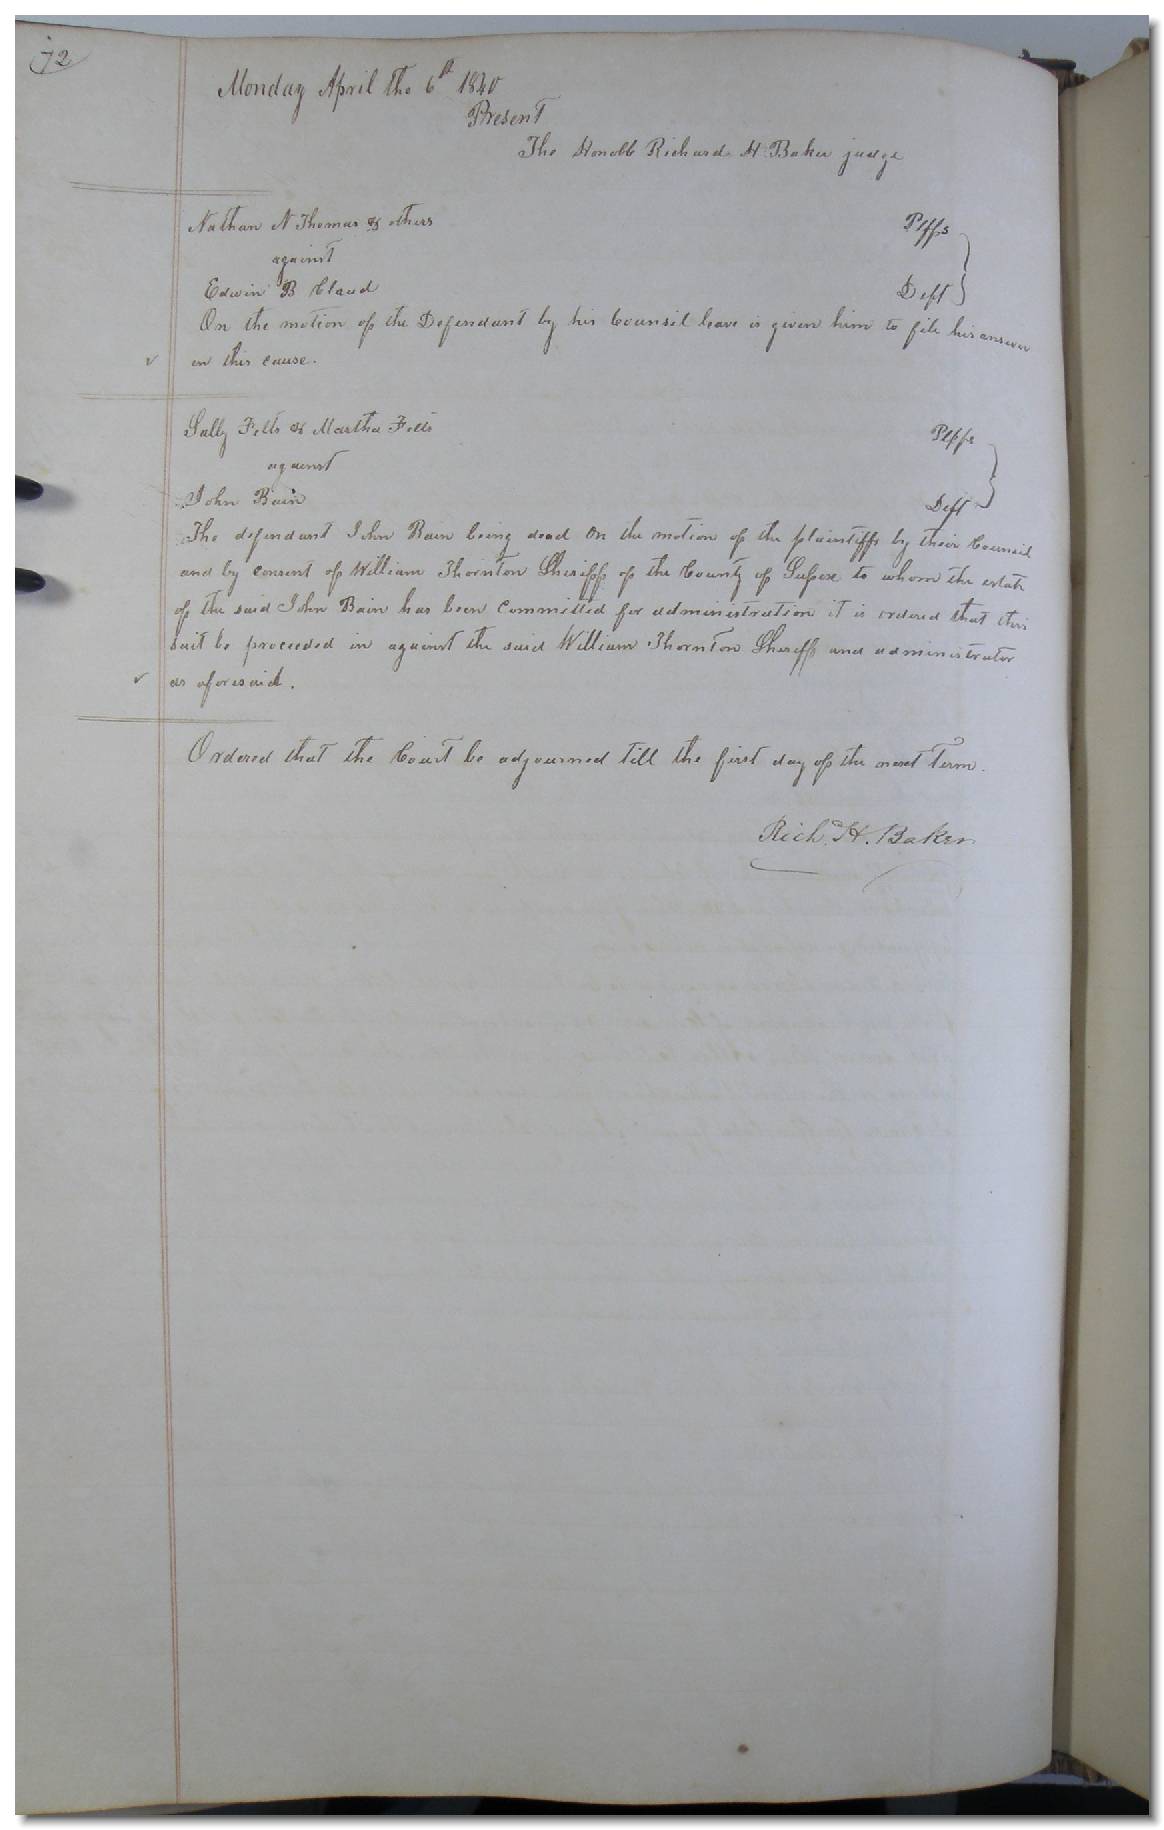 72
Monday April the 6th 1840
Present
The Honble Richard H Baker judge
Nathan N Thomas & others Plffs
against
Edwin B Claud Deft
On the motion of the Defendant by his Counsil leave is given him to file his answer
in this cause.
Sally Felts & Martha Felts Plffs
against
John Bain Deft
The defendant John Bain being dead On the motion of the plaintiffs by their Council
and by consent of William Thornton Sheriff of the County of Sussex to whom the estate
of the said John Bain has been Committed for administration it is ordered that this
suit be proceeded in against the said William Thornton Sheriff and administrator
as aforesaid.
Ordered that the Court be adjourned till the first day of the next Term.
Rich. H. Baker